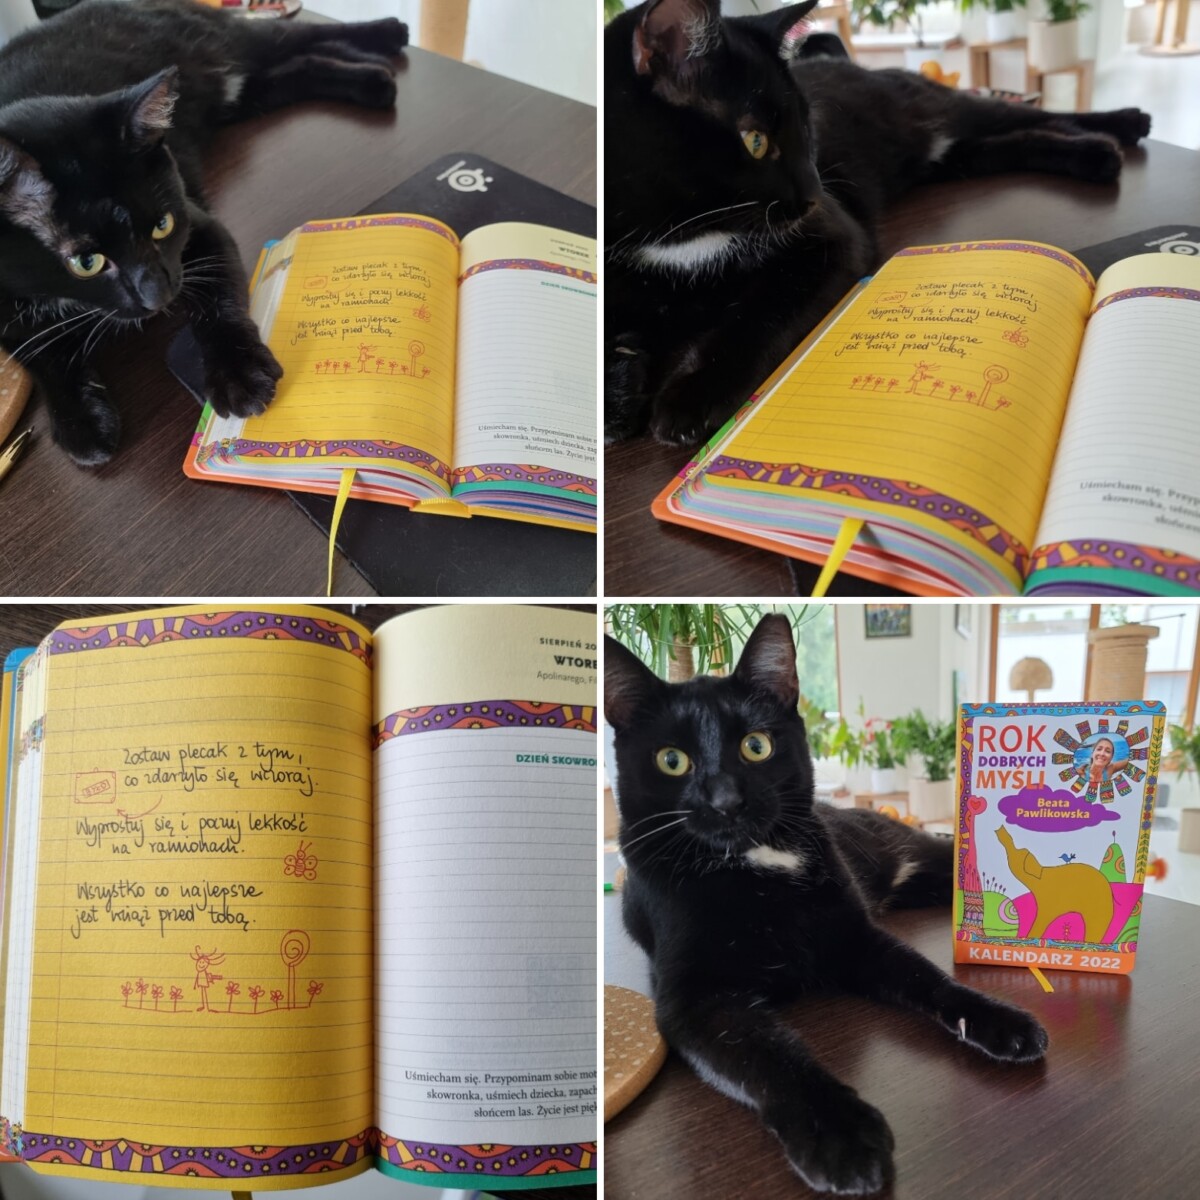 Zostaw plecak z tym,
co zdarzyło się wczoraj.
Wyprostuj się i poczuj lekkość
na ramionach.
Wszystko co najlepsze
jest wciąż przed tobą.
WTOREK
DZIEŃ SKOWRON
Uśmiecham się. Przypominam sobie
skowronka, uśmiech dziecka, zap
słońcem las. Życie jest
Zostaw plecak z tym,
co zdarzyło się wczoraj
Wyprostuj się i poczuj lekkość
na ramionach.
Wszystko co najlepsze
jest wciąż przed tobą.
Uśmiecham się. Przyp
skowronka, uśm
Zostaw plecak z tym,
co zdarzyło się wczoraj.
Wyprostuj się i poczuj lekkość
na ramionach.
Wszystko co najlepsze
jest wciąż przed tobą.
SIERPIEŃ 20
WTORE
Apolinarego, Fi
DZIEŃ SKOWRO
Uśmiecham się. Przypominam sobie mot
skowronka, uśmiech dziecka, zapach
słońcem las. Życie jest pięk
ROK
DOBRYCH
MYŚLI
Beata
Pawlikowska
KALENDARZ 2022